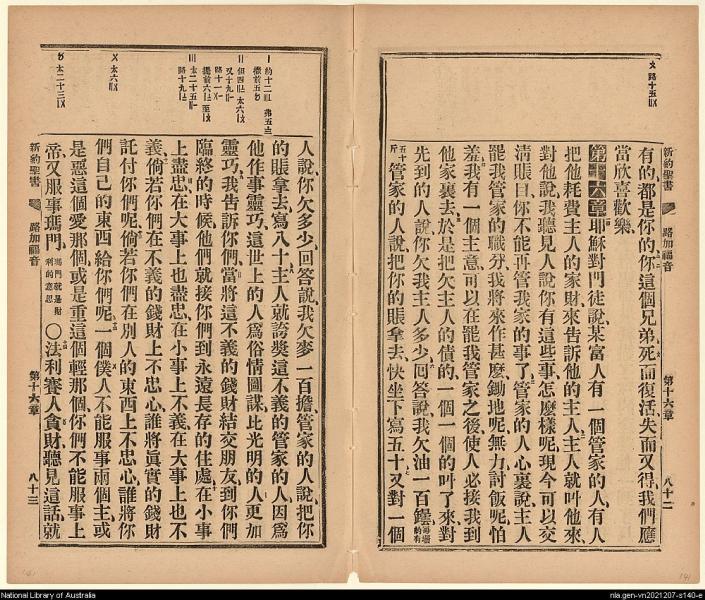 路十五
新約聖書
路加福音
第十六章
八十二
有的都是你的你這個兄弟死而復活失而又得我們應
當欣喜歡樂
第十六章耶穌對門徒說某富人有一個管家的人有人
把他耗費主人的家財來告訴他的主人主人就叫他來
對他說我聽見人說你有這些事怎麼樣呢現今可以交
清賬目你不能再管我家的事了管家的人心裏說主人
罷我管家的職分我將來作甚麼鋤地呢無力討飯呢怕
羞我有一個主意可以在罷我管家之後使人必接我到
他家裏去於是把欠主人的債的一個一個的叫了來對
先到的人說你欠我主人多少回答說我欠油一百
五十斤管家的人說把你的賬拿去快坐下寫五十又對一個
人說你欠多少回答說我欠麥一百擔管家的人說把你
的賬拿去寫八十主人就誇獎這不義的管家的人因爲
他作事靈巧這世上的人爲俗情圖謀比光明的人更加
靈巧我告訴你們當將這不義的錢財結交朋友到你們
臨終的時候他們就接你們到永遠長存的住處在小事
上盡忠在大事上也盡忠在小事上不義在大事上也不
義倘若你們在不義的錢財上不忠心誰將眞實的錢財
託付你們呢倘若你們在別人的東西上不忠心誰將你
們自己的東西給你們呢一個僕人不能服事兩個主或
是惡這個愛那個或是重這個輕那個你們不能服事上
帝又服事瑪門瑪門就是財利的意思〇法利賽人貪財聽見這話就
新約聖書
路加福音
第十六章
八十三
National Library of Australia
nla.gen-vn2021207-s140-e